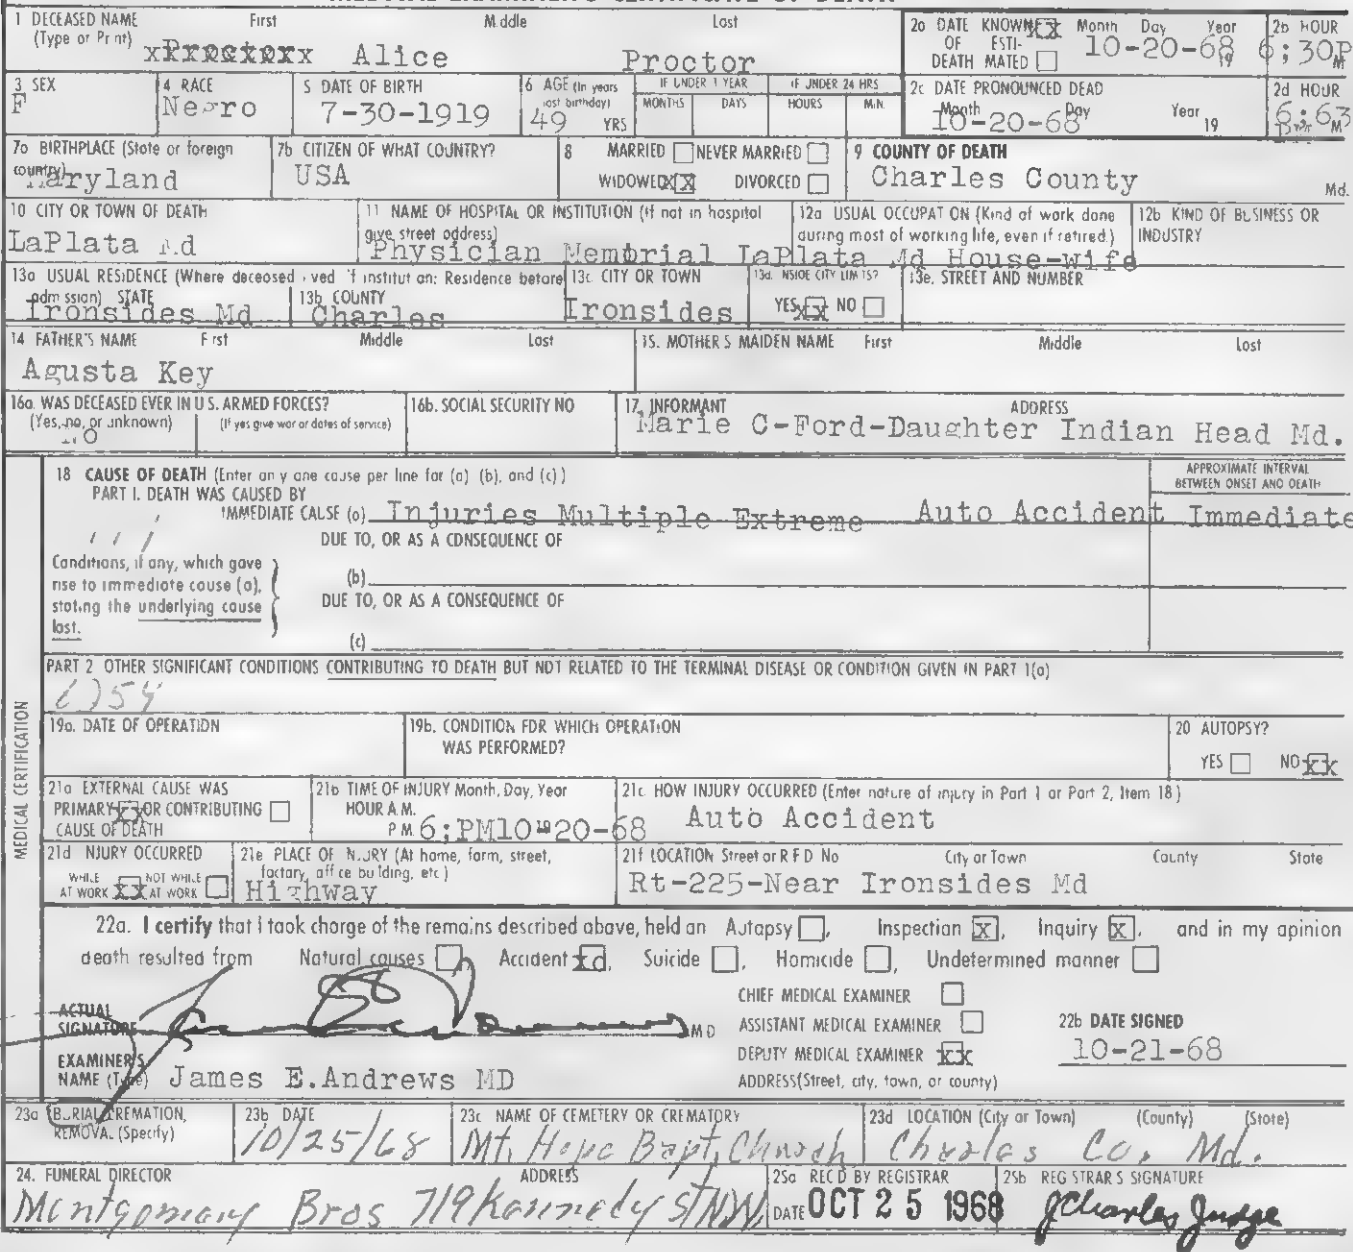 1 DECEASED NAME First Middle Last
(Type or Print) xProctorx Alice Proctor
2a DATE KNOWN xx Month Day Year
OF ESTI-
DEATH MATED 10-20-68 19
2b HOUR
6;30P M
3 SEX
F
4 RACE
Negro
5 DATE OF BIRTH
7-30-1919
6 AGE (In years
last birthday)
49 YRS
IF UNDER 1 YEAR
MONTHS DAYS
IF UNDER 24 HRS
HOURS MIN.
2c DATE PRONOUNCED DEAD
Month Day Year 19
10-20-68
2d HOUR
6:63 M
7a BIRTHPLACE (State or foreign
country)
Maryland
7b CITIZEN OF WHAT COUNTRY?
USA
8 MARRIED NEVER MARRIED
WIDOWED XX DIVORCED
9 COUNTY OF DEATH
Charles County Md.
10 CITY OR TOWN OF DEATH
LaPlata Md
11 NAME OF HOSPITAL OR INSTITUTION (If not in hospital
give street address)
Physician Memorial LaPlata Md
12a USUAL OCCUPATION (Kind of work done
during most of working life, even if retired.)
House-wife
12b KIND OF BUSINESS OR
INDUSTRY
13a USUAL RESIDENCE (Where deceased lived if institution: Residence before
admission) STATE
Ironsides Md
13b COUNTY
Charles
13c CITY OR TOWN
Ironsides
13d. INSIDE CITY LIMITS?
YES xx NO
13e. STREET AND NUMBER
14 FATHER'S NAME First Middle Last
Agusta Key
15. MOTHER'S MAIDEN NAME First Middle Last
16a. WAS DECEASED EVER IN U S. ARMED FORCES?
(Yes, no, or unknown) (If yes give war or dates of service)
No
16b. SOCIAL SECURITY NO
17. INFORMANT ADDRESS
Marie C-Ford-Daughter Indian Head Md.
MEDICAL CERTIFICATION
18 CAUSE OF DEATH (Enter only one cause per line for (a) (b), and (c))
PART I. DEATH WAS CAUSED BY
APPROXIMATE INTERVAL
BETWEEN ONSET AND DEATH
IMMEDIATE CAUSE (a) Injuries Multiple Extreme Auto Accident Immediate
DUE TO, OR AS A CONSEQUENCE OF
Conditions, if any, which gave
rise to immediate cause (a),
stating the underlying cause
last.
(b)
DUE TO, OR AS A CONSEQUENCE OF
(c)
PART 2 OTHER SIGNIFICANT CONDITIONS CONTRIBUTING TO DEATH BUT NOT RELATED TO THE TERMINAL DISEASE OR CONDITION GIVEN IN PART 1(a)
19a. DATE OF OPERATION
19b. CONDITION FOR WHICH OPERATION
WAS PERFORMED?
20 AUTOPSY?
YES NO xx
21a EXTERNAL CAUSE WAS
PRIMARY xx OR CONTRIBUTING
CAUSE OF DEATH
21b TIME OF INJURY Month, Day, Year
HOUR A.M.
P M. 6;PM10-20-68
21c HOW INJURY OCCURRED (Enter nature of injury in Part 1 or Part 2, Item 18)
Auto Accident
21d INJURY OCCURRED
WHILE AT WORK xx NOT WHILE AT WORK
21e PLACE OF INJURY (At home, farm, street,
factory, office building, etc)
Highway
21f LOCATION Street or R F D No City or Town County State
Rt-225-Near Ironsides Md
22a. I certify that I took charge of the remains described above, held an Autopsy , Inspection X , Inquiry X , and in my opinion
death resulted from Natural causes , Accident xd , Suicide , Homicide , Undetermined manner
ACTUAL
SIGNATURE MD
CHIEF MEDICAL EXAMINER
ASSISTANT MEDICAL EXAMINER
DEPUTY MEDICAL EXAMINER xx
22b DATE SIGNED
10-21-68
EXAMINER'S
NAME (Type) James E.Andrews MD
ADDRESS(Street, city, town, or county)
23a BURIAL, CREMATION,
REMOVAL (Specify)
23b DATE
10/25/68
23c NAME OF CEMETERY OR CREMATORY
Mt. Hope Bapt. Church
23d LOCATION (City or Town) (County) (State)
Charles Co. Md.
24. FUNERAL DIRECTOR ADDRESS
Montgomery Bros 719 Kennedy St NW
25a REC'D BY REGISTRAR
DATE OCT 25 1968
25b REGISTRAR'S SIGNATURE
J Charles Judge